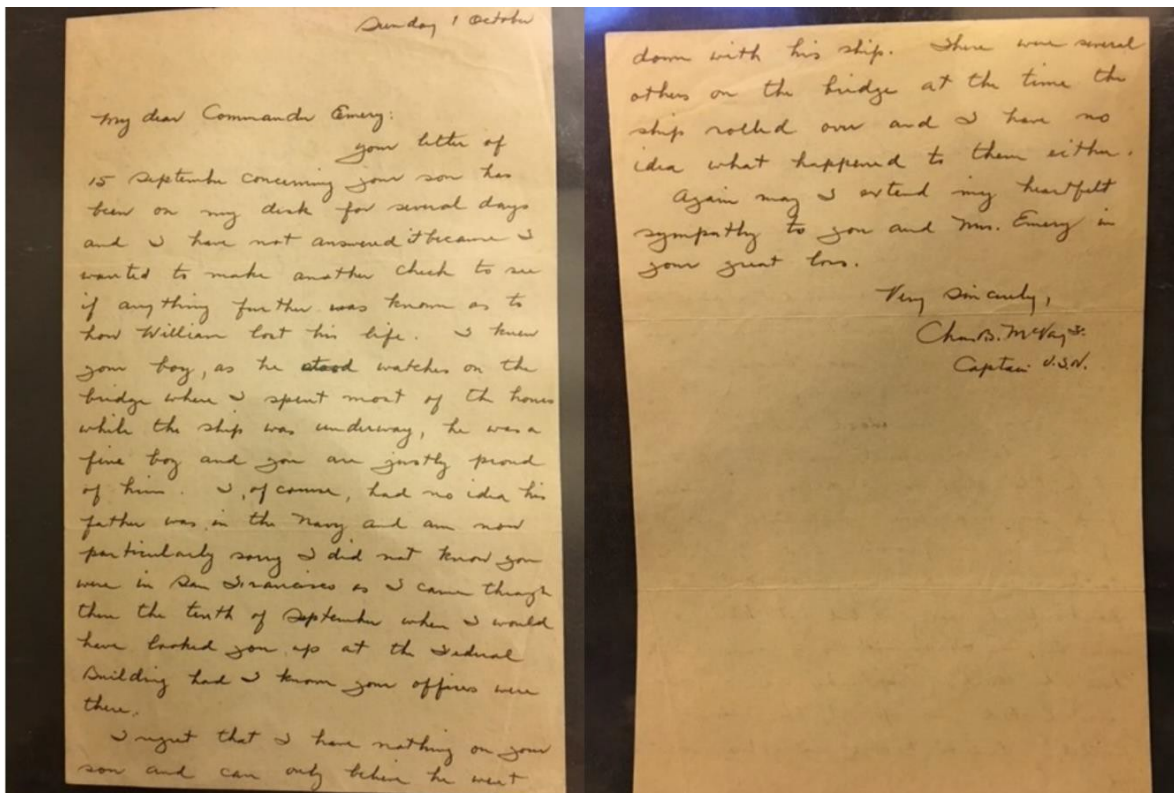 Sunday 1 October
My dear Commander Emery:
your letter of
15 September concerning your son has
been on my desk for several days
and I have not answered it because I
wanted to make another check to see
if anything further was known as to
how William lost his life. I knew
your boy, as he stood watches on the
bridge where I spent most of the hours
while the ship was underway, he was a
fine boy and you are justly proud
of him. I, of course, had no idea his
father was in the Navy and am now
particularly sorry I did not know you
were in San Francisco as I came through
there the tenth of September when I would
have looked you up at the Federal
Building had I known your offices were
there.
I regret that I have nothing on your
son and can only believe he went
down with his ship. There were several
others on the bridge at the time the
ship rolled over and I have no
idea what happened to them either.
Again may I extend my heartfelt
sympathy to you and Mrs. Emery in
your great loss.
Very sincerely,
Chas. B. McVay 3.
Captain U.S.N.